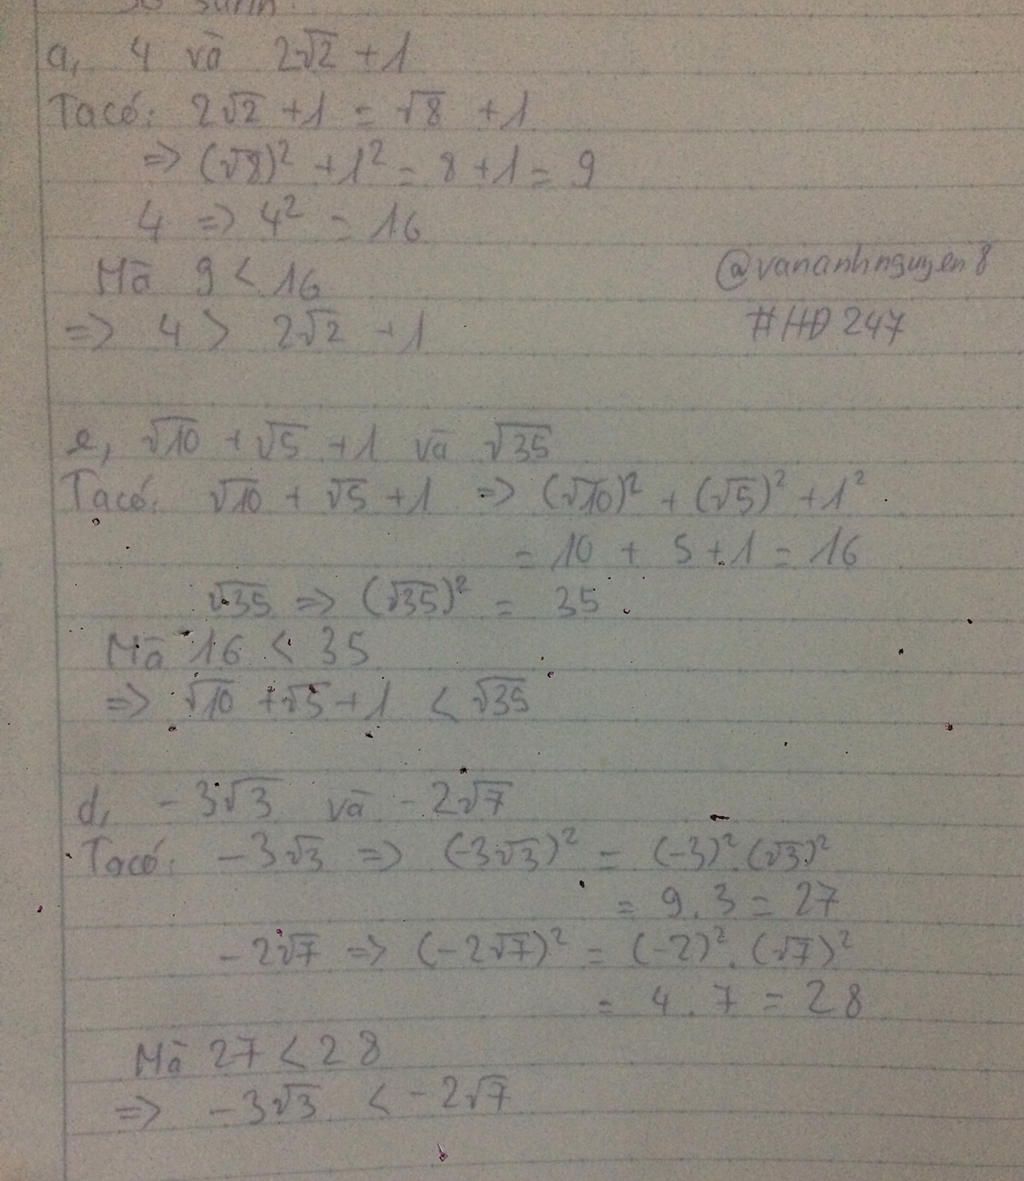 a, 4 và 2√2 + 1
Ta có: 2√2 + 1 = √8 + 1
=> (√8)² + 1² = 8 + 1 = 9
4 => 4² = 16
Mà 9 < 16
@vananhnguyen8
=> 4 > 2√2 + 1
#HĐ247
e, √10 + √5 + 1 và √35
Ta có: √10 + √5 + 1 => (√10)² + (√5)² + 1²
= 10 + 5 + 1 = 16
√35 => (√35)² = 35
Mà 16 < 35
=> √10 + √5 + 1 < √35
d, -3√3 và -2√7
Ta có: -3√3 => (-3√3)² = (-3)².(√3)²
= 9.3 = 27
-2√7 => (-2√7)² = (-2)².(√7)²
= 4.7 = 28
Mà 27 < 28
=> -3√3 < -2√7